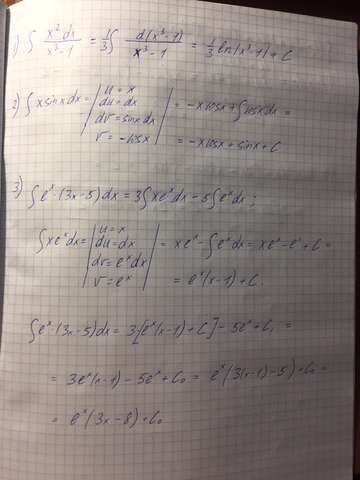 1) ∫ x² dx / x³-1 = 1/3 ∫ d(x³-1) / x³-1 = 1/3 ln(x³-1) + C
2) ∫ x sinx dx = | u = x
du = dx
dv = sinx dx
v = -cosx | = -x cosx + ∫ cosx dx =
= -x cosx + sinx + C
3) ∫ eˣ·(3x-5) dx = 3∫ xeˣ dx - 5∫ eˣ dx ;
∫ xeˣ dx = | u = x
du = dx
dv = eˣ dx
v = eˣ | = xeˣ - ∫ eˣ dx = xeˣ - eˣ + C =
= eˣ(x-1) + C.
∫ eˣ·(3x-5) dx = 3[eˣ(x-1) + C] - 5eˣ + C₁ =
= 3eˣ(x-1) - 5eˣ + C₀ = eˣ(3(x-1) - 5) + C₀ =
= eˣ(3x-8) + C₀